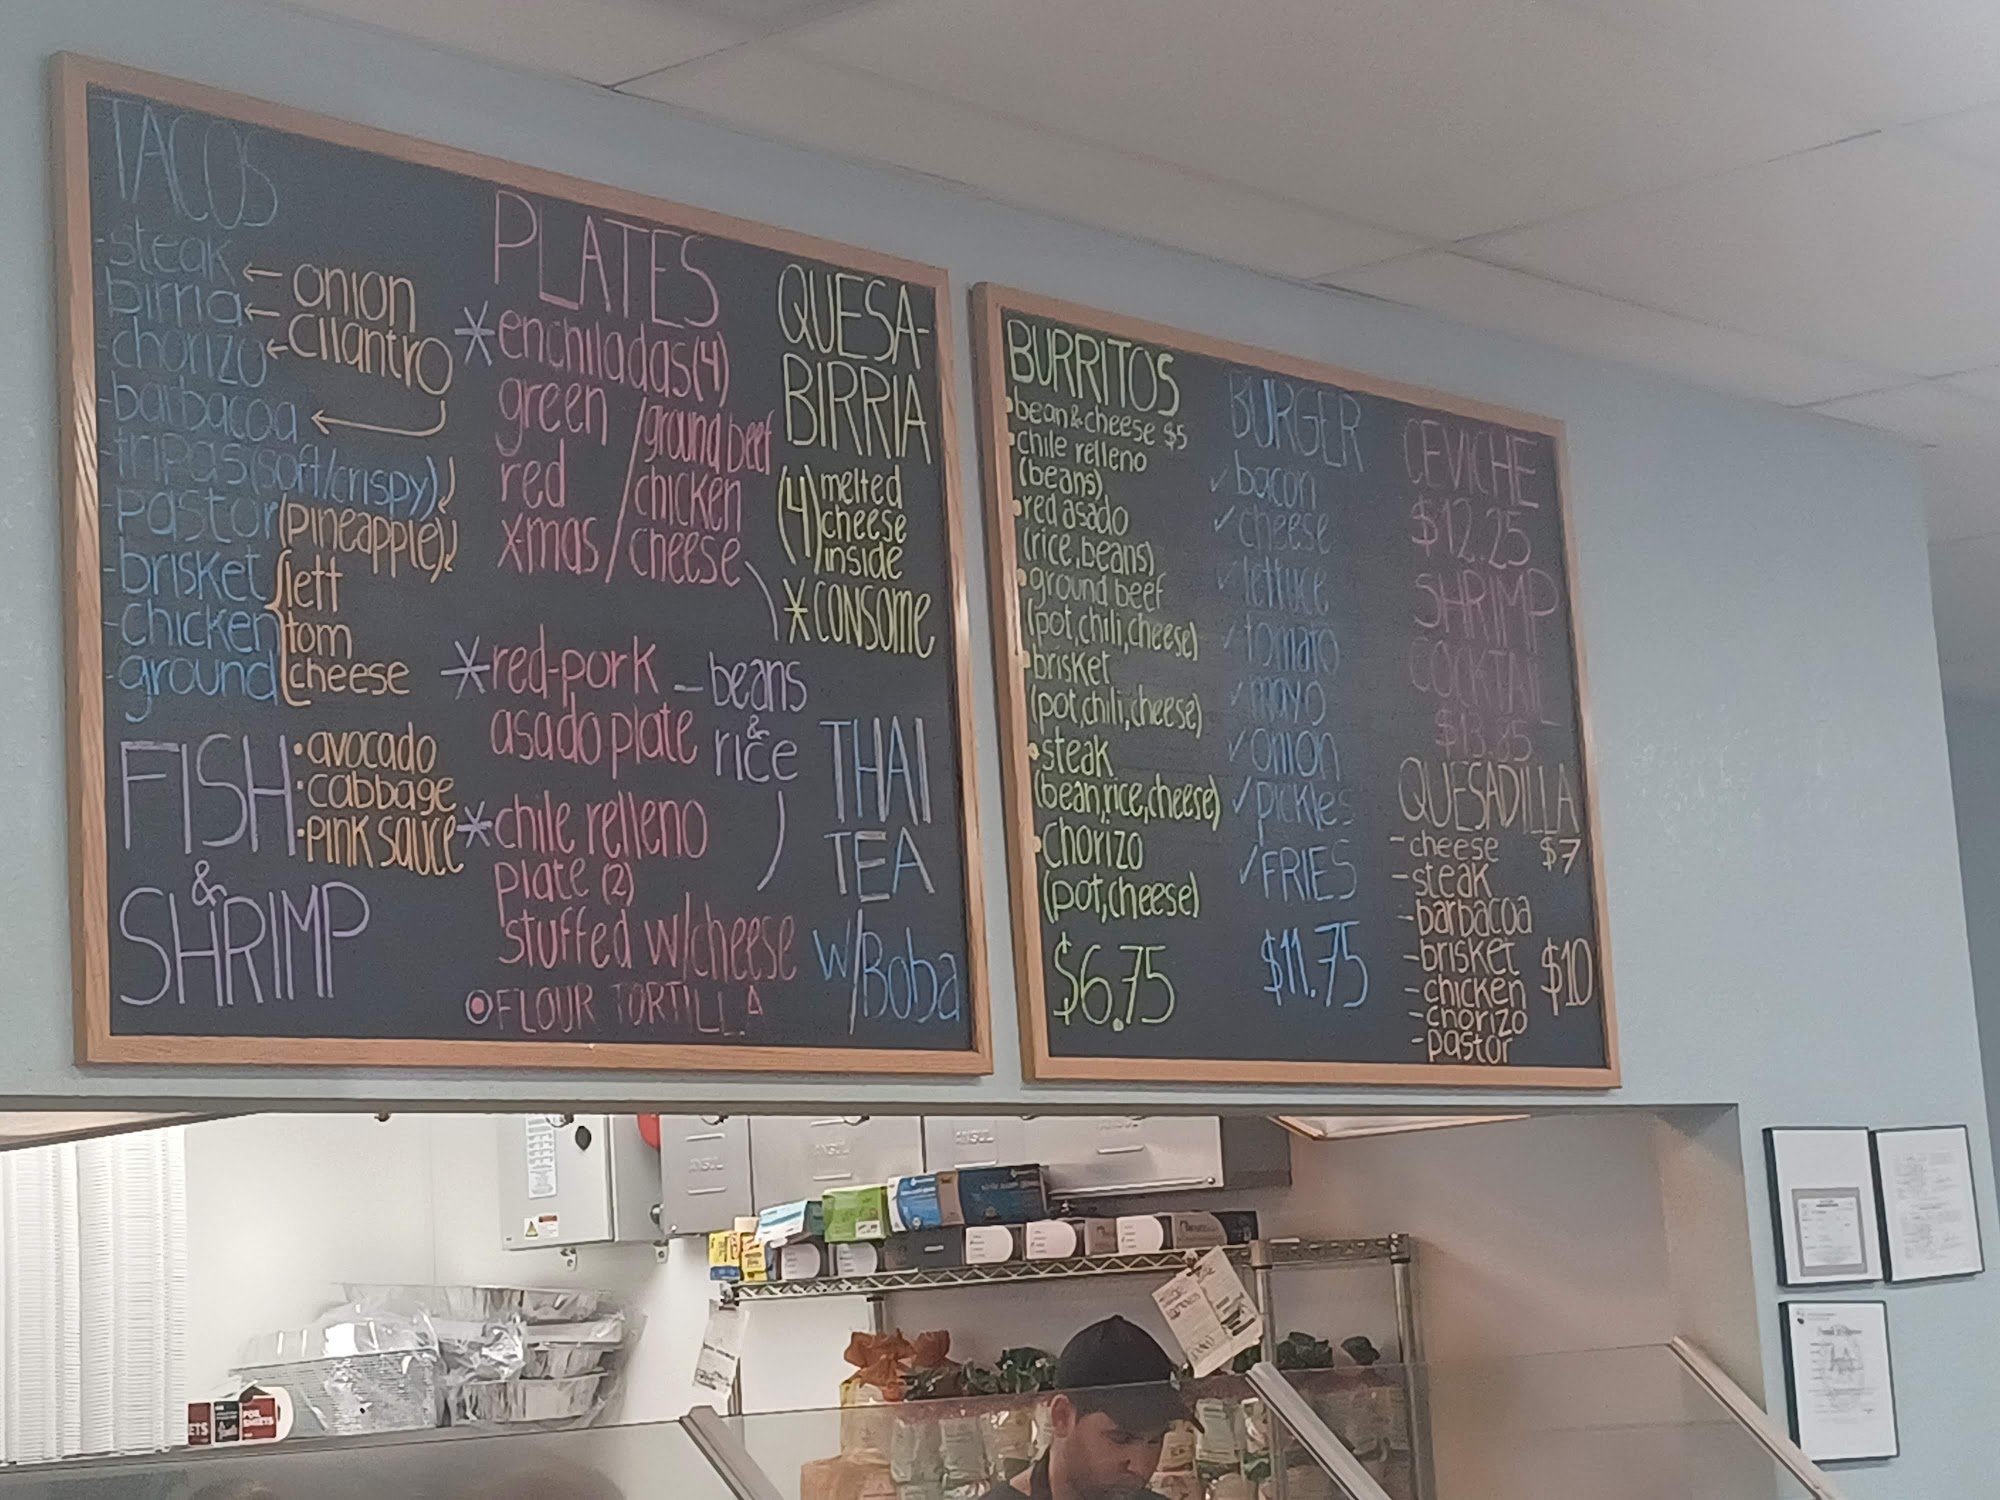 TACOS
-steak
-birria
-chorizo
-barbacoa
-tripas (soft/crispy)
-pastor (pineapple)
-brisket
-chicken
-ground
onion
cilantro
lett
tom
cheese
FISH
&
SHRIMP
•avocado
•cabbage
•pink sauce
PLATES
*enchiladas(4)
green /ground beef
red /chicken
x-mas /cheese
*red-pork
asado plate
-beans
&
rice
*chile relleno
plate (2)
stuffed w/cheese
FLOUR TORTILLA
QUESA-
BIRRIA
(4) melted
cheese
inside
*CONSOME
THAI
TEA
w/Boba
BURRITOS
•bean & cheese $5
•chile relleno
(beans)
•red asado
(rice, beans)
•ground beef
(pot, chili, cheese)
•brisket
(pot, chili, cheese)
•steak
(bean, rice, cheese)
•Chorizo
(pot, cheese)
$6.75
BURGER
✓bacon
✓cheese
✓lettuce
✓tomato
✓mayo
✓onion
✓pickles
✓FRIES
$11.75
CEVICHE
$12.25
SHRIMP
COCKTAIL
QUESADILLA
-cheese $7
-steak
-barbacoa
-brisket $10
-chicken
-chorizo
-pastor
ANSUL
ANSUL
ANSUL
ANSUL
FOIL
SHEETS